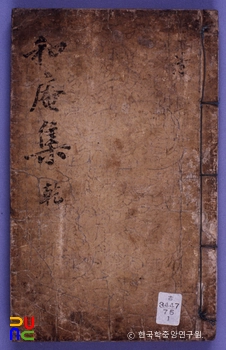 和庵集 乾
3447
75
1
© 한국학중앙연구원